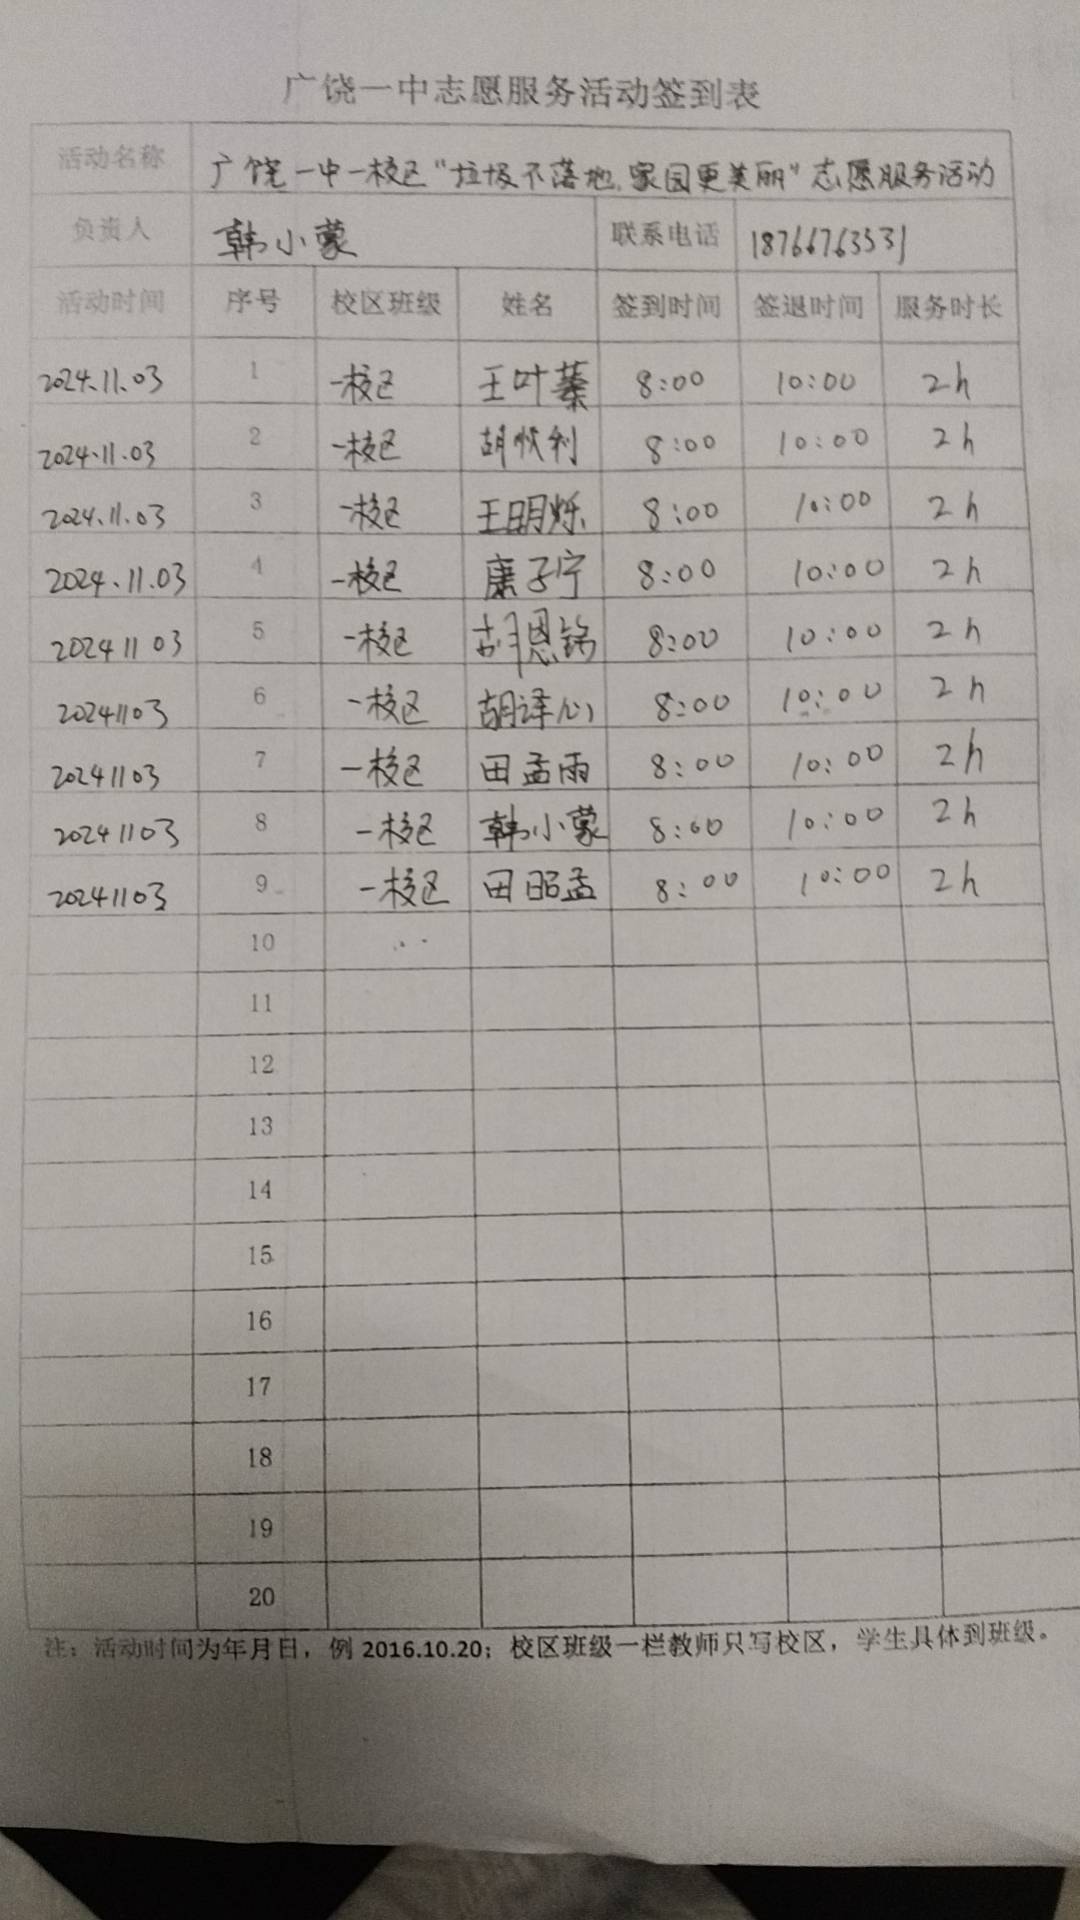 广饶一中志愿服务活动签到表
活动名称 广饶一中一校区“垃圾不落地,家园更美丽”志愿服务活动
负责人 韩小蒙 联系电话 18766763531
活动时间 序号 校区班级 姓名 签到时间 签退时间 服务时长
2024.11.03 1 一校区 王叶蓁 8:00 10:00 2h
2024.11.03 2 一校区 胡 利 8:00 10:00 2h
2024.11.03 3 一校区 王明烁 8:00 10:00 2h
2024.11.03 4 一校区 康子宁 8:00 10:00 2h
2024 11 03 5 一校区 胡恩铭 8:00 10:00 2h
20241103 6 一校区 胡译心 8:00 10:00 2h
20241103 7 一校区 田孟雨 8:00 10:00 2h
20241103 8 一校区 韩小蒙 8:00 10:00 2h
20241103 9 一校区 田昭孟 8:00 10:00 2h
10
11
12
13
14
15
16
17
18
19
20
注：活动时间为年月日，例 2016.10.20；校区班级一栏教师只写校区，学生具体到班级。